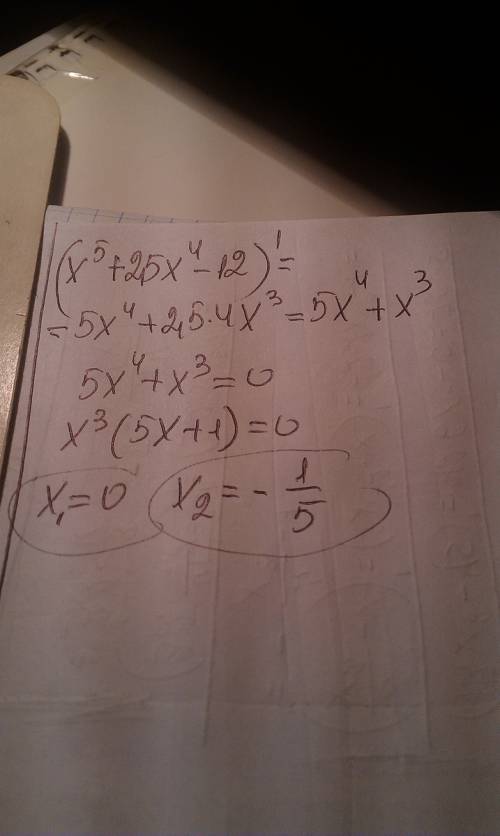 (x⁵+2,5x⁴-12)'=
=5x⁴+2,5·4x³=5x⁴+x³
5x⁴+x³=0
x³(5x+1)=0
x₁=0 x₂=-1/5